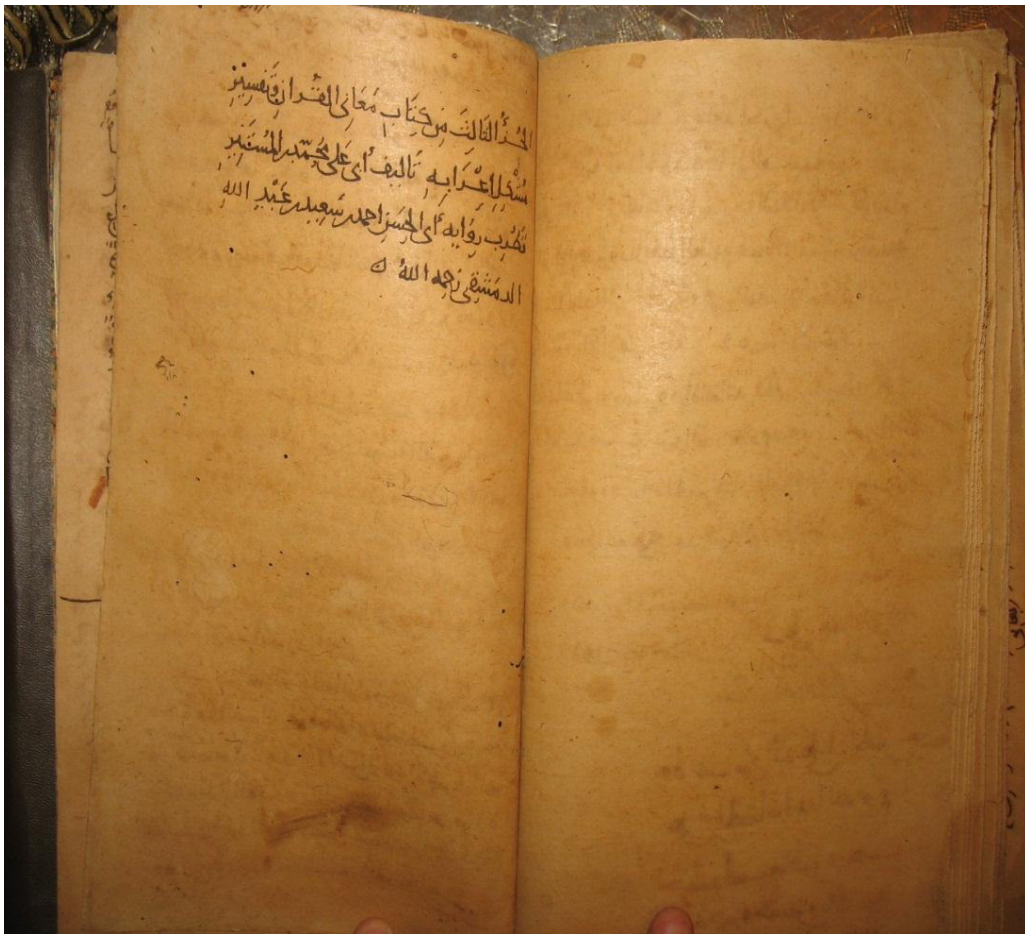 الجُزءُ الثَالِثُ مِن كِتَابِ مَعَانِي القُرانِ وَتَفسِيرِ
مُشْكِلِ اِعْرَابِهِ تَالِيف أبى عَلى مُحَمّد بن المُسْتَنِيرِ
قُطْرُب رِوَايه أبى الحَسَنِ احمد بن سَعِيد بن عَبْدِ اللهِ
الدمَشقِى رَحِمه اللهُ